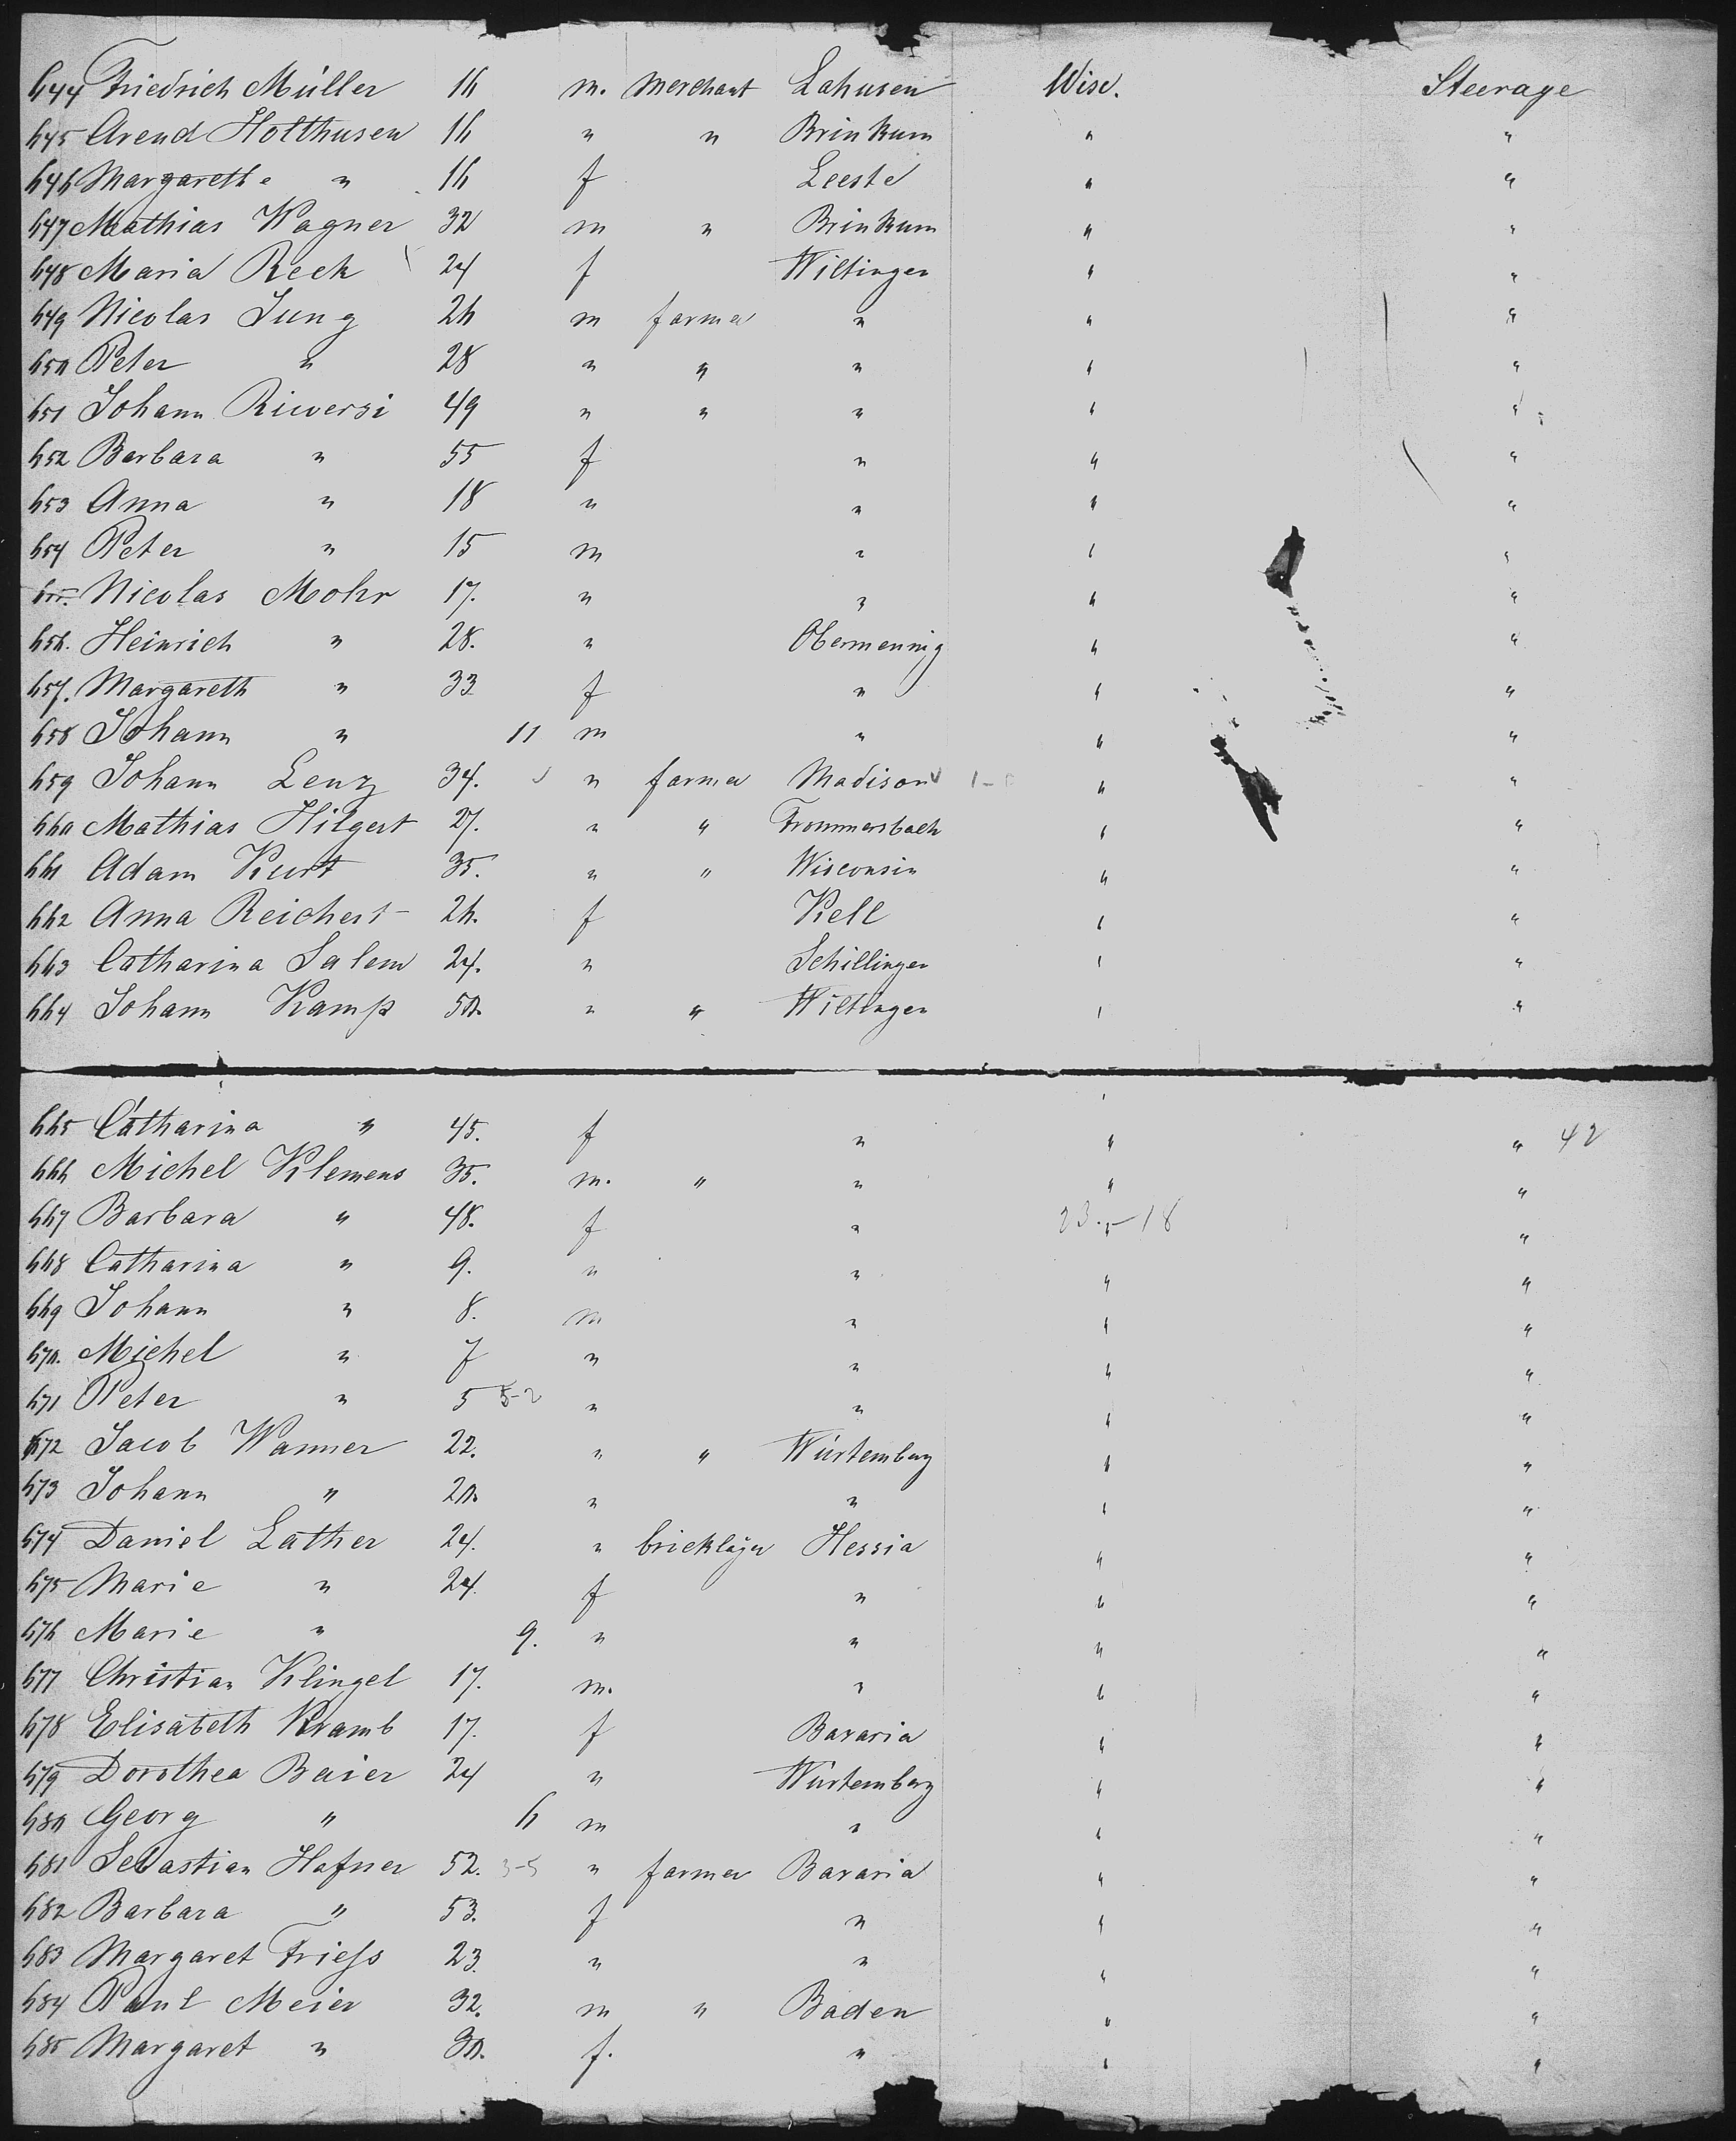 644 Friedrich Müller 16 m. merchant Lahusen Wisc. Steerage
645 Arend Holthusen 16 " " Brinkum " "
646 Margarethe " 16 f Leeste " "
647 Mathias Wagner 32 m " Brinkum " "
648 Maria Reck 24 f Wiltingen " "
649 Nicolas Jung 26 m farmer " " "
650 Peter " 28 " " " " "
651 Johann Riwersi 49 " " " " "
652 Barbara " 55 f " " "
653 Anna " 18 " " " "
654 Peter " 15 m " " "
655. Nicolas Mohr 17. " " " "
656. Heinrich " 28. " Obermennig " "
657. Margareth " 33 f " " "
658 Johann " 11 m " " "
659 Johann Lenz 34. " farmer Madison " "
660 Mathias Hilgert 27. " " Frommersbach " "
661 Adam Kurt 35. " " Wisconsin " "
662 Anna Reichert 26. f Kell " "
663 Catharina Salem 24. " Schillingen " "
664 Johann Kamp 50. " " Wiltingen " "
665 Catharina " 45. f " " " 42
666 Michel Klemens 35. m. " " " "
667 Barbara " 48. f " 23.-18 "
668 Catharina " 9. " " " "
669 Johann " 8. m " " "
670. Michel " 7 " " " "
671 Peter " 5 5-2 " " " "
672 Jacob Wanner 22. " " Würtemberg " "
673 Johann " 20. " " " "
674 Daniel Lather 24. " bricklayer Hessia " "
675 Marie " 24. f " " "
676 Marie " 9. " " " "
677 Christian Klingel 17. m. " " "
678 Elisabeth Kramb 17. f Bavaria " "
679 Dorothea Baier 24 " Würtemberg " "
680 Georg " 6 m " " "
681 Sebastian Hafner 52. 3-5 " farmer Bavaria " "
682 Barbara " 53. f " " "
683 Margaret Friess 23. " " " "
684 Paul Meier 32. m " Baden " "
685 Margaret " 30. f. " " "